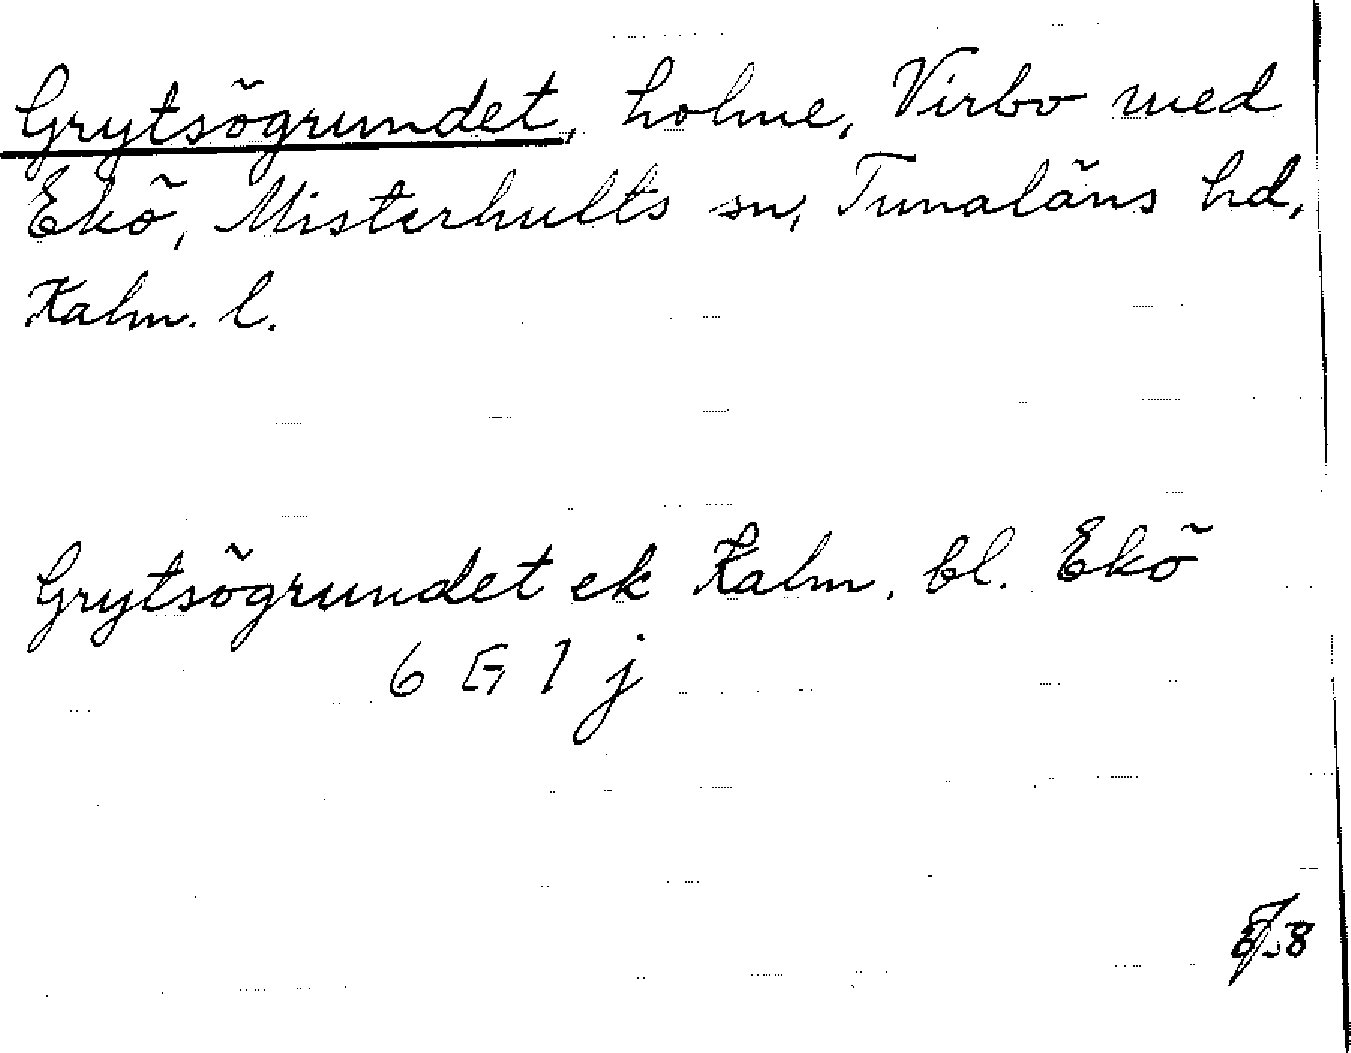 Grytsögrundet, holme, Virbo med
Ekö, Misterhults sn, Tunaläns hd,
Kalm. l.
Grytsögrundet ek Kalm. bl. Ekö
6 G 7 j